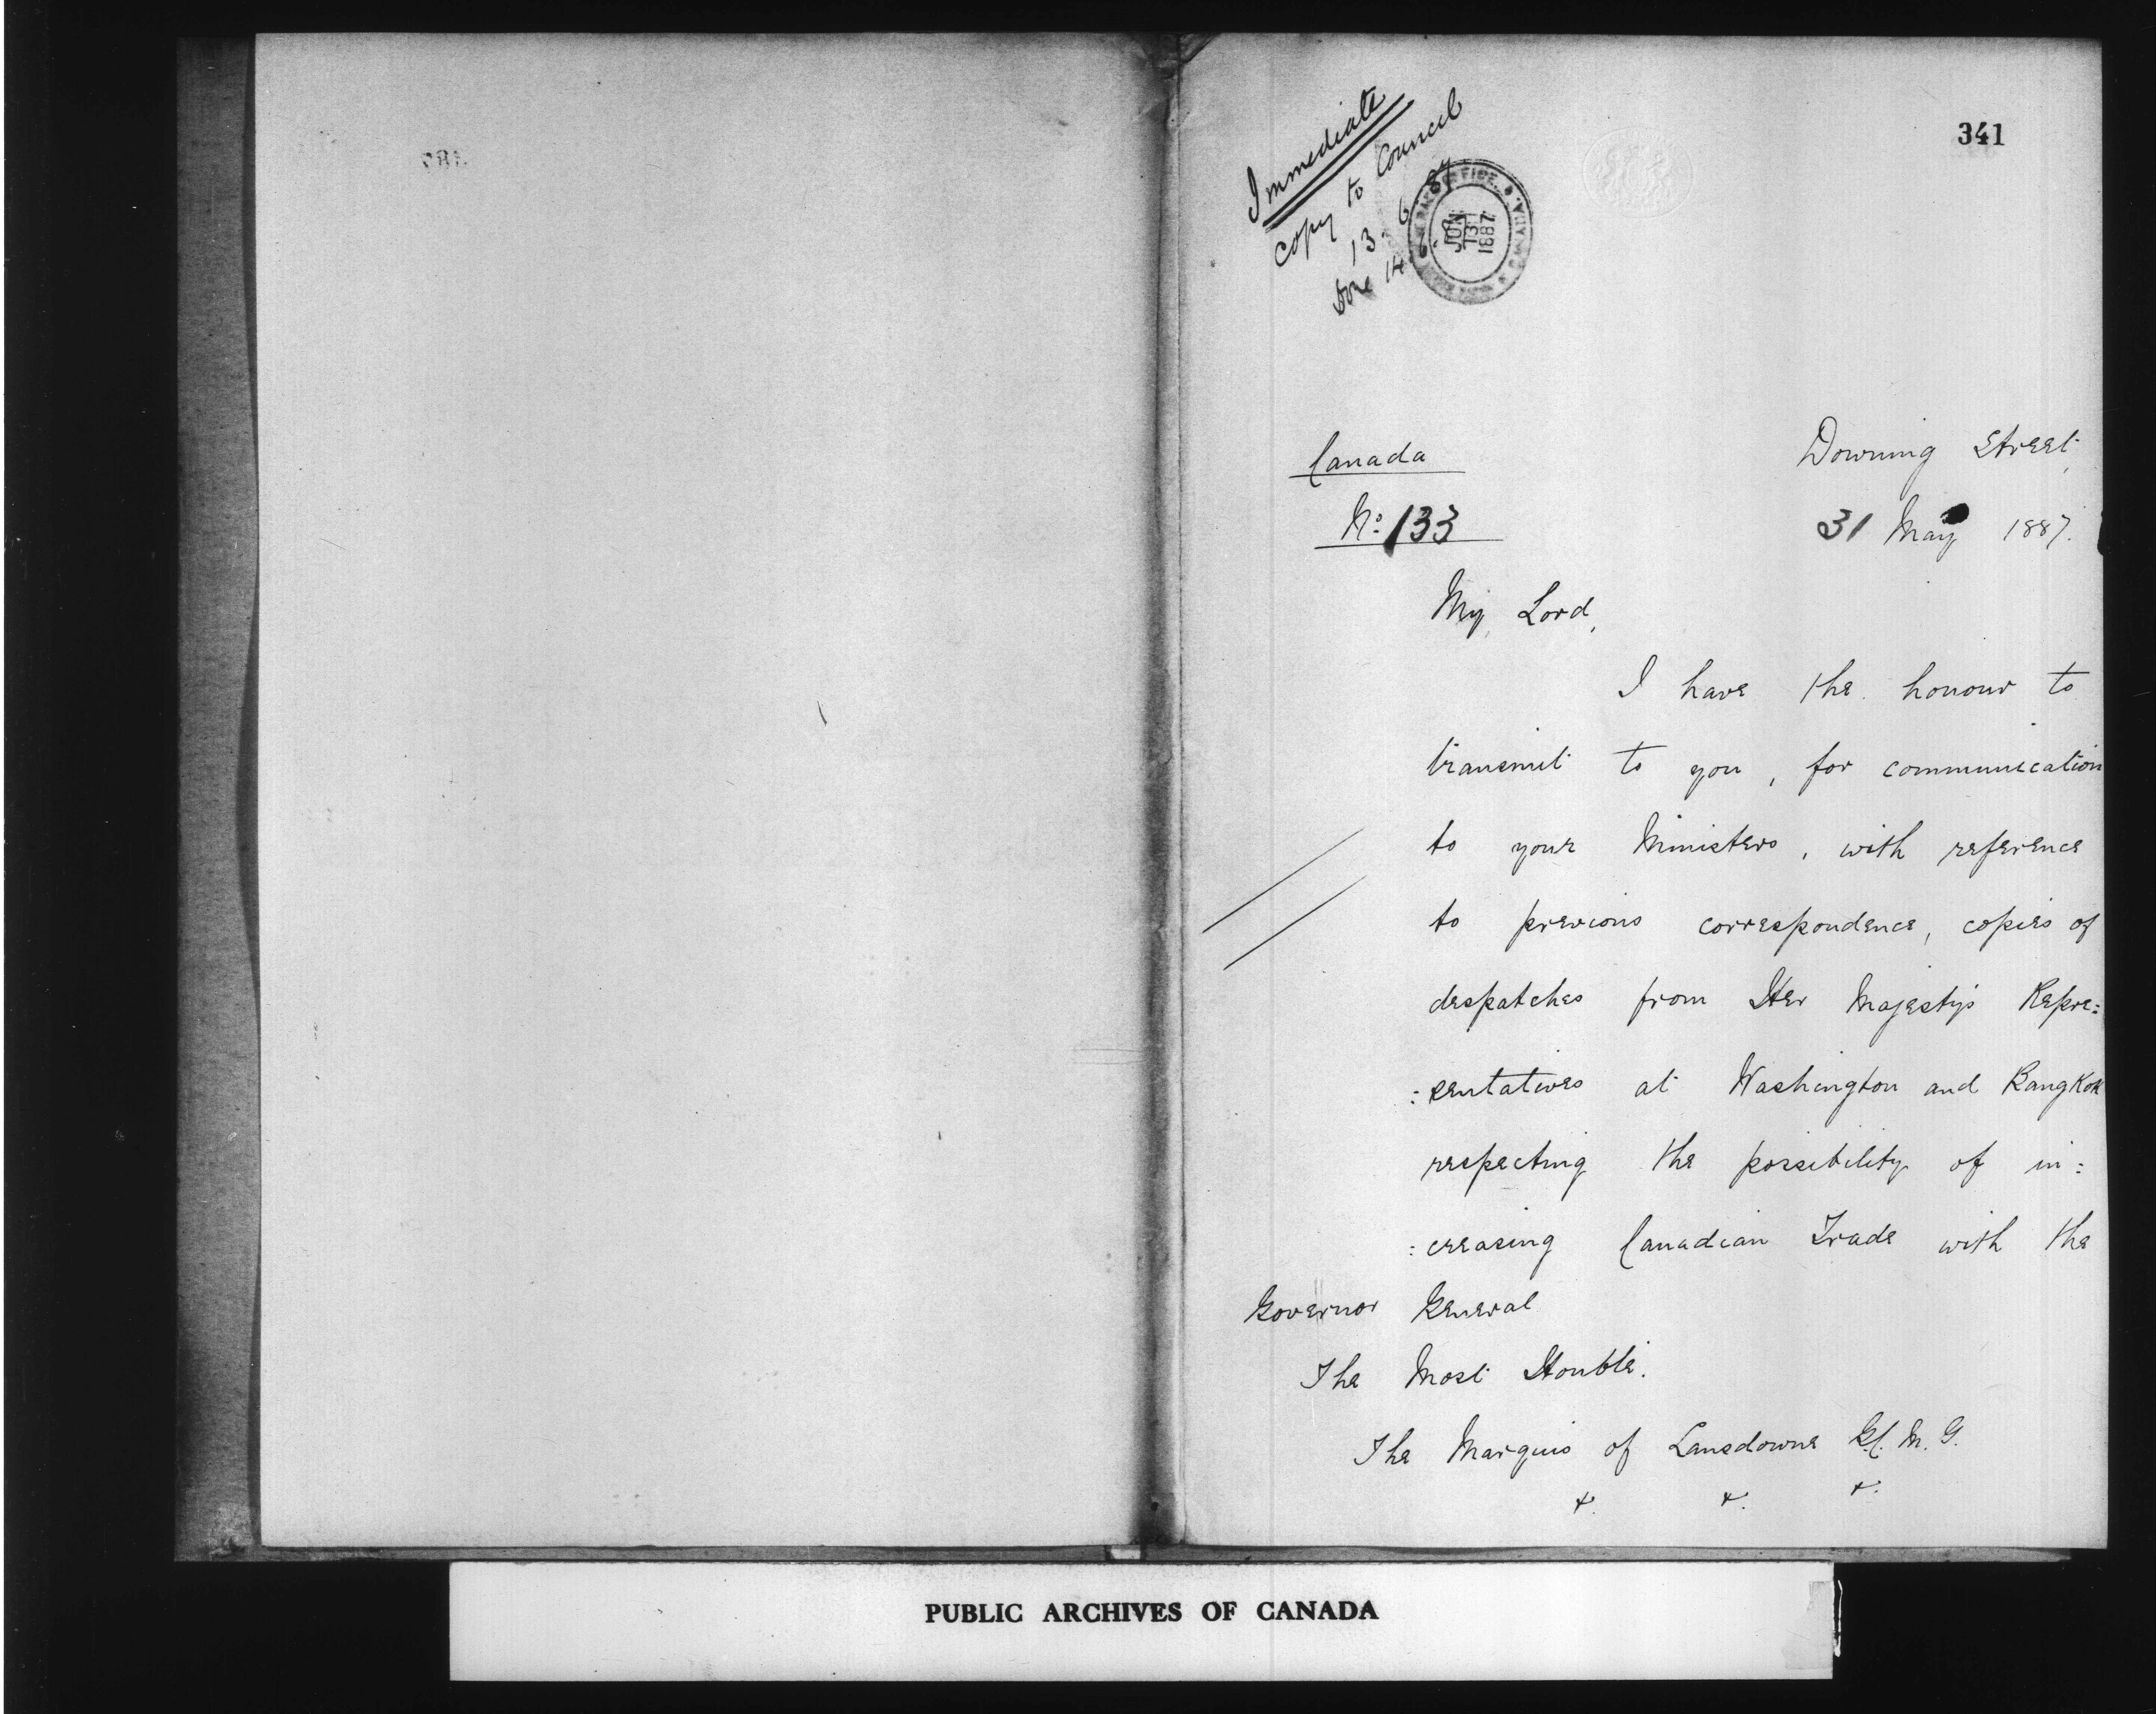 341
Immediate
Copy to Council
13. 6. 87
Done 14.6.
JUN
13
1887
Canada
Downing Street,
No: 133
31 May 1887.
My Lord,
I have the honour to
transmit to you, for communication
to your Ministers, with reference
to previous correspondence, copies of
despatches from Her Majesty's Repre:
:sentatives at Washington and Bangkok
respecting the possibility of in:
:creasing Canadian Trade with the
Governor General
The Most Honble.
The Marquis of Lansdowne G.C.M.G.
&. &. &.
PUBLIC ARCHIVES OF CANADA